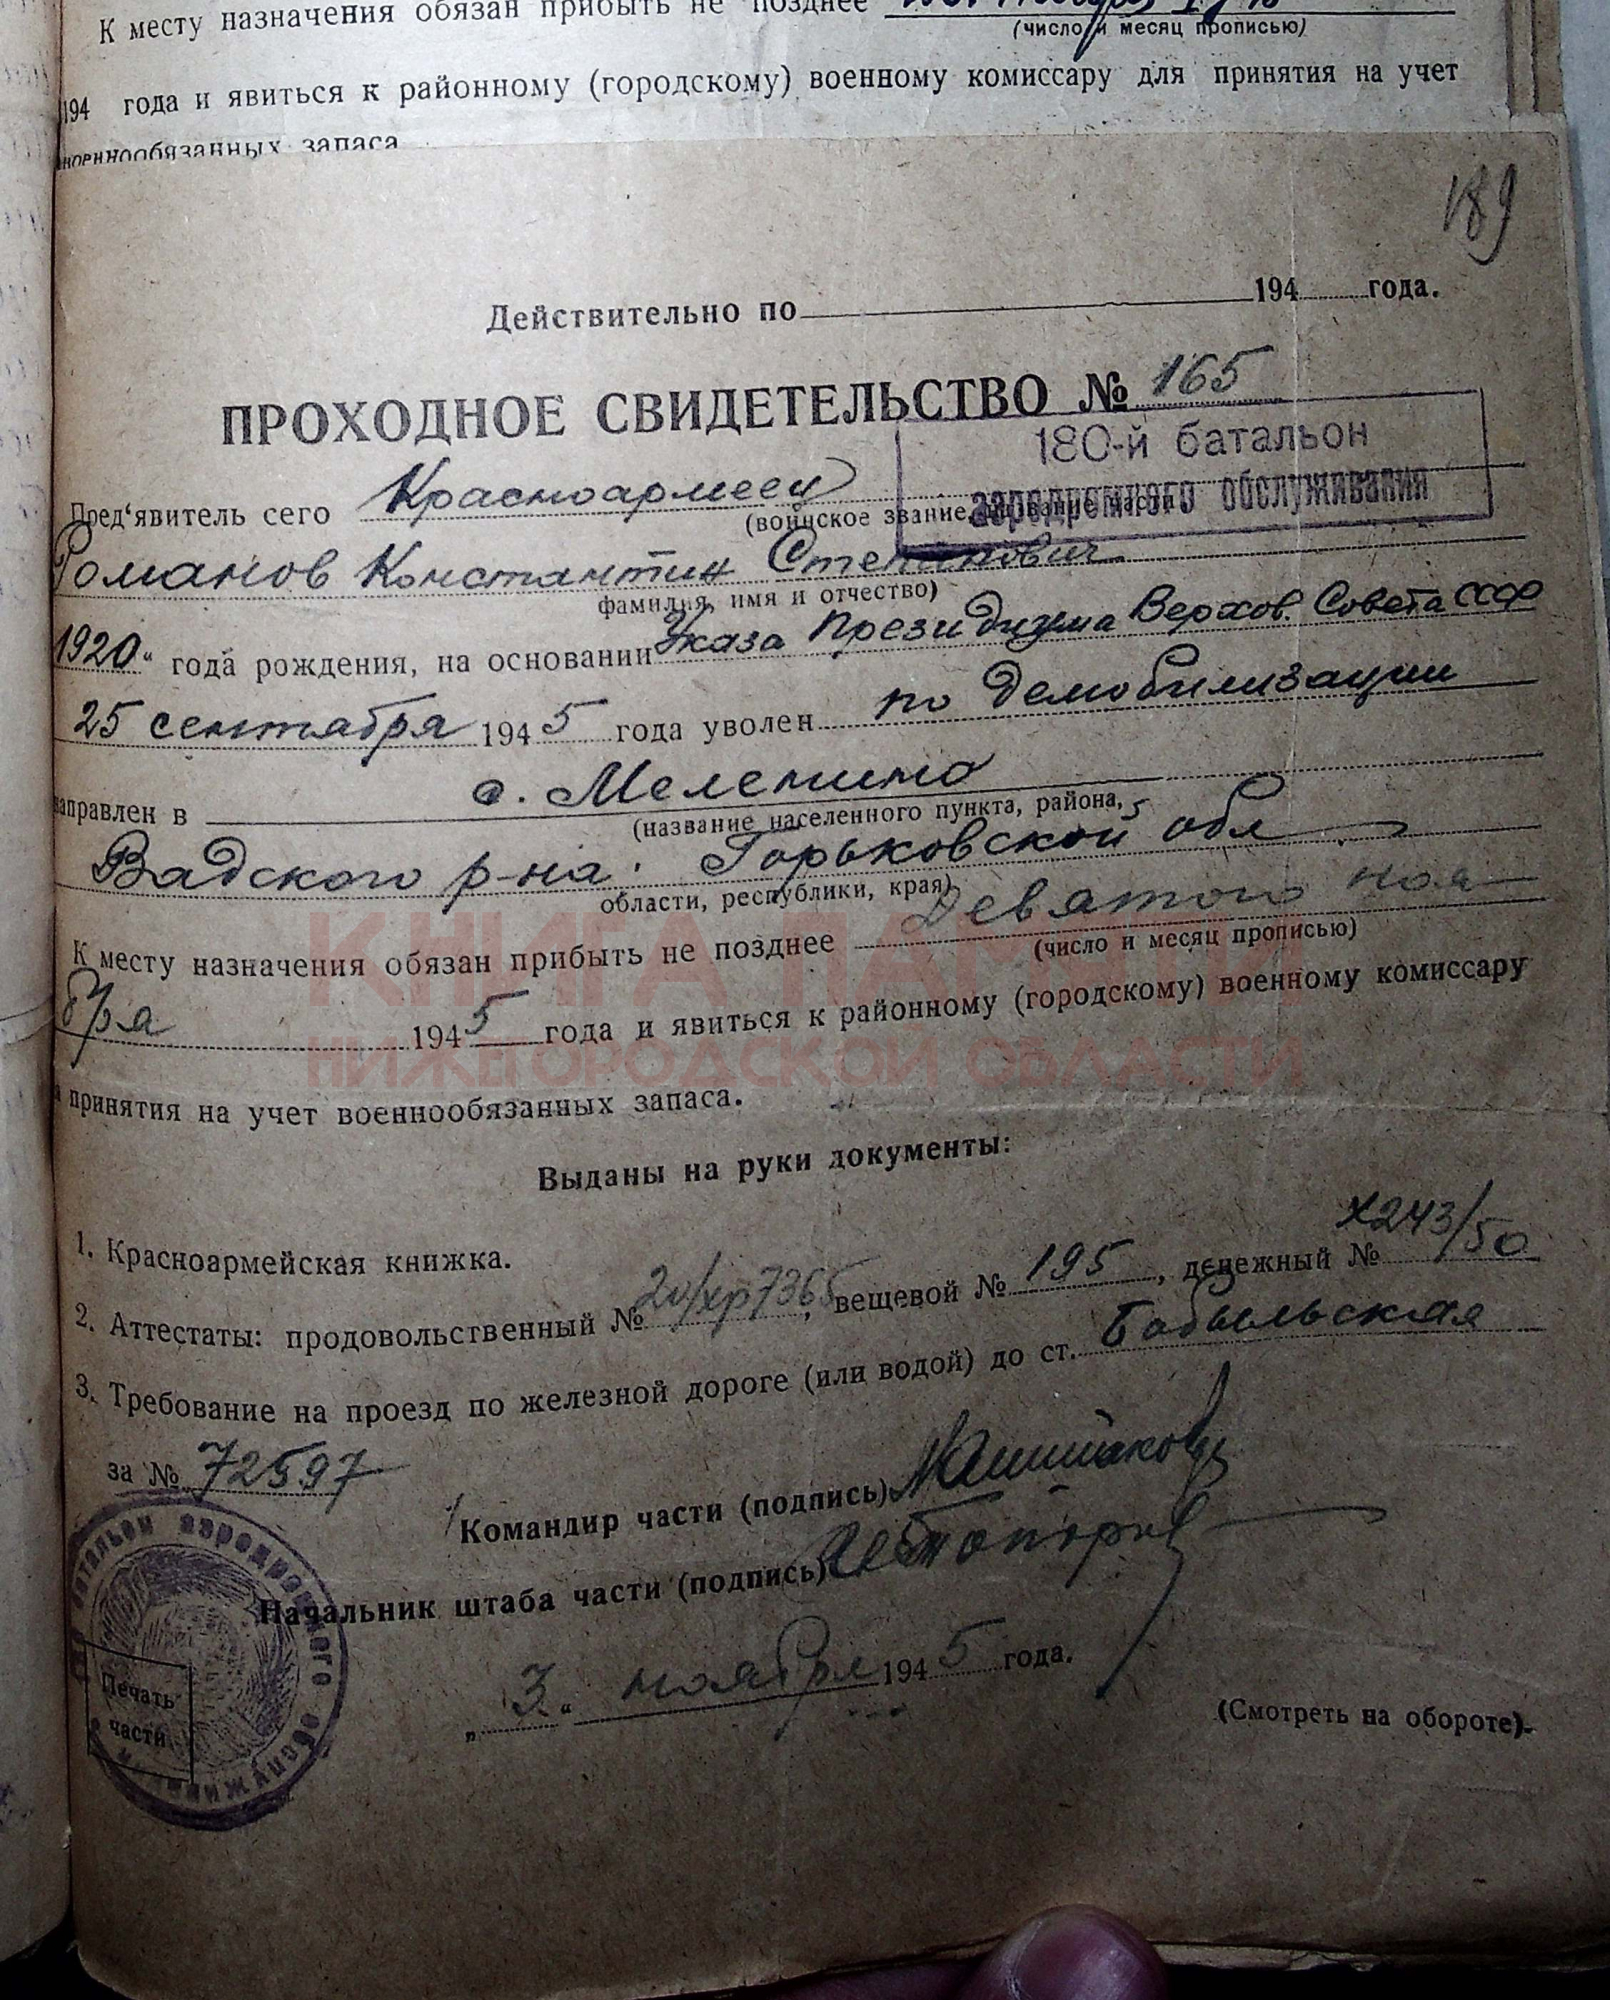 К месту назначения обязан прибыть не позднее
(число и месяц прописью)
194 года и явиться к районному (городскому) военному комиссару для принятия на учет
военнообязанных запаса
189
Действительно по 194 года.
ПРОХОДНОЕ СВИДЕТЕЛЬСТВО № 165
180-й батальон
аэродромного обслуживания
Пред'явитель сего Красноармеец
(воинское звание,
Романов Константин Степанович
фамилия, имя и отчество)
1920 " года рождения, на основании Указа Президиума Верхов. Совета СССР
25 сентября 1945 года уволен по демобилизации
направлен в с. Мелетино
(название населенного пункта, района,
Вадского р-на. Горьковской обл
области, республики, края)
К месту назначения обязан прибыть не позднее Девятого ноя-
(число и месяц прописью)
бря 1945 года и явиться к районному (городскому) военному комиссару
принятия на учет военнообязанных запаса.
КНИГА ПАМЯТИ
НИЖЕГОРОДСКОЙ ОБЛАСТИ
Выданы на руки документы:
1. Красноармейская книжка.
2. Аттестаты: продовольственный №, вещевой № 195, денежный № х243/50
3. Требование на проезд по железной дороге (или водой) до ст. Бобыльская
за № 72597
Командир части (подпись)
Начальник штаба части (подпись)
батальон аэродромного обслуживания
Печать
части
„ 3 “ ноября 1945 года.
(Смотреть на обороте).